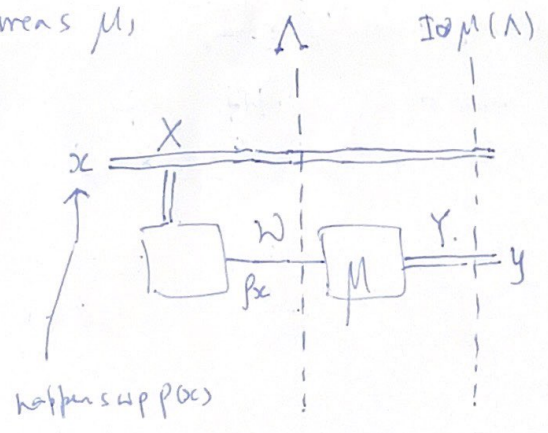 meas μ,
Λ
I⊗μ(Λ)
X
x
W
Y
μ
y
ρx
happens wp p(x)